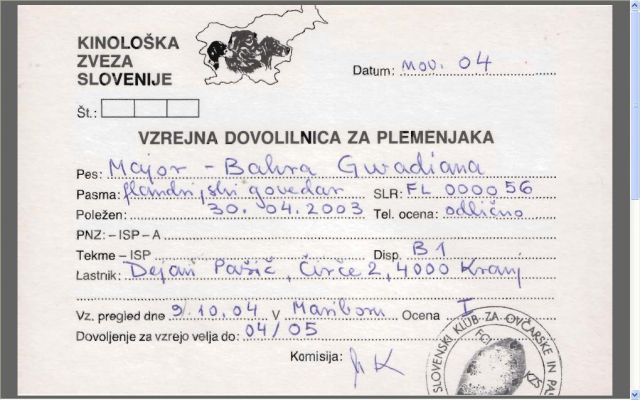 KINOLOŠKA
ZVEZA
SLOVENIJE
Datum: nov. 04
Št.:
VZREJNA DOVOLILNICA ZA PLEMENJAKA
Pes: Major - Bahra Gwadiana
Pasma: flandrijski govedar SLR: FL 000056
Poležen: 30. 04. 2003 Tel. ocena: odlično
PNZ: – ISP – A
Tekme – ISP Disp. B1
Lastnik: Dejan Pašič, Čirče 2, 4000 Kranj
Vz. pregled dne 9.10.04 V Mariboru Ocena I
Dovoljenje za vzrejo velja do: 04/05
Komisija:
SLOVENSKI KLUB ZA OVČARSKE IN
FCI KZS